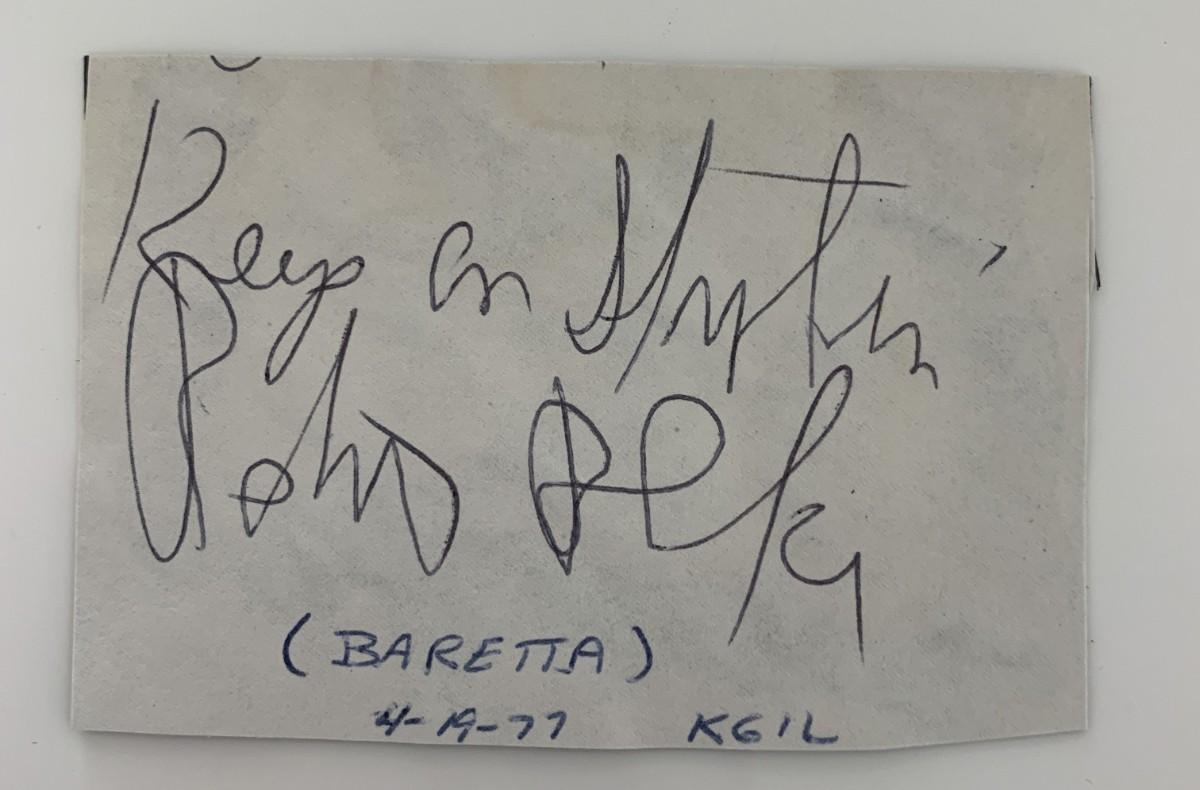 Keep on Struttin'
Robt Blake
(BARETTA)
4-19-77 KGIL